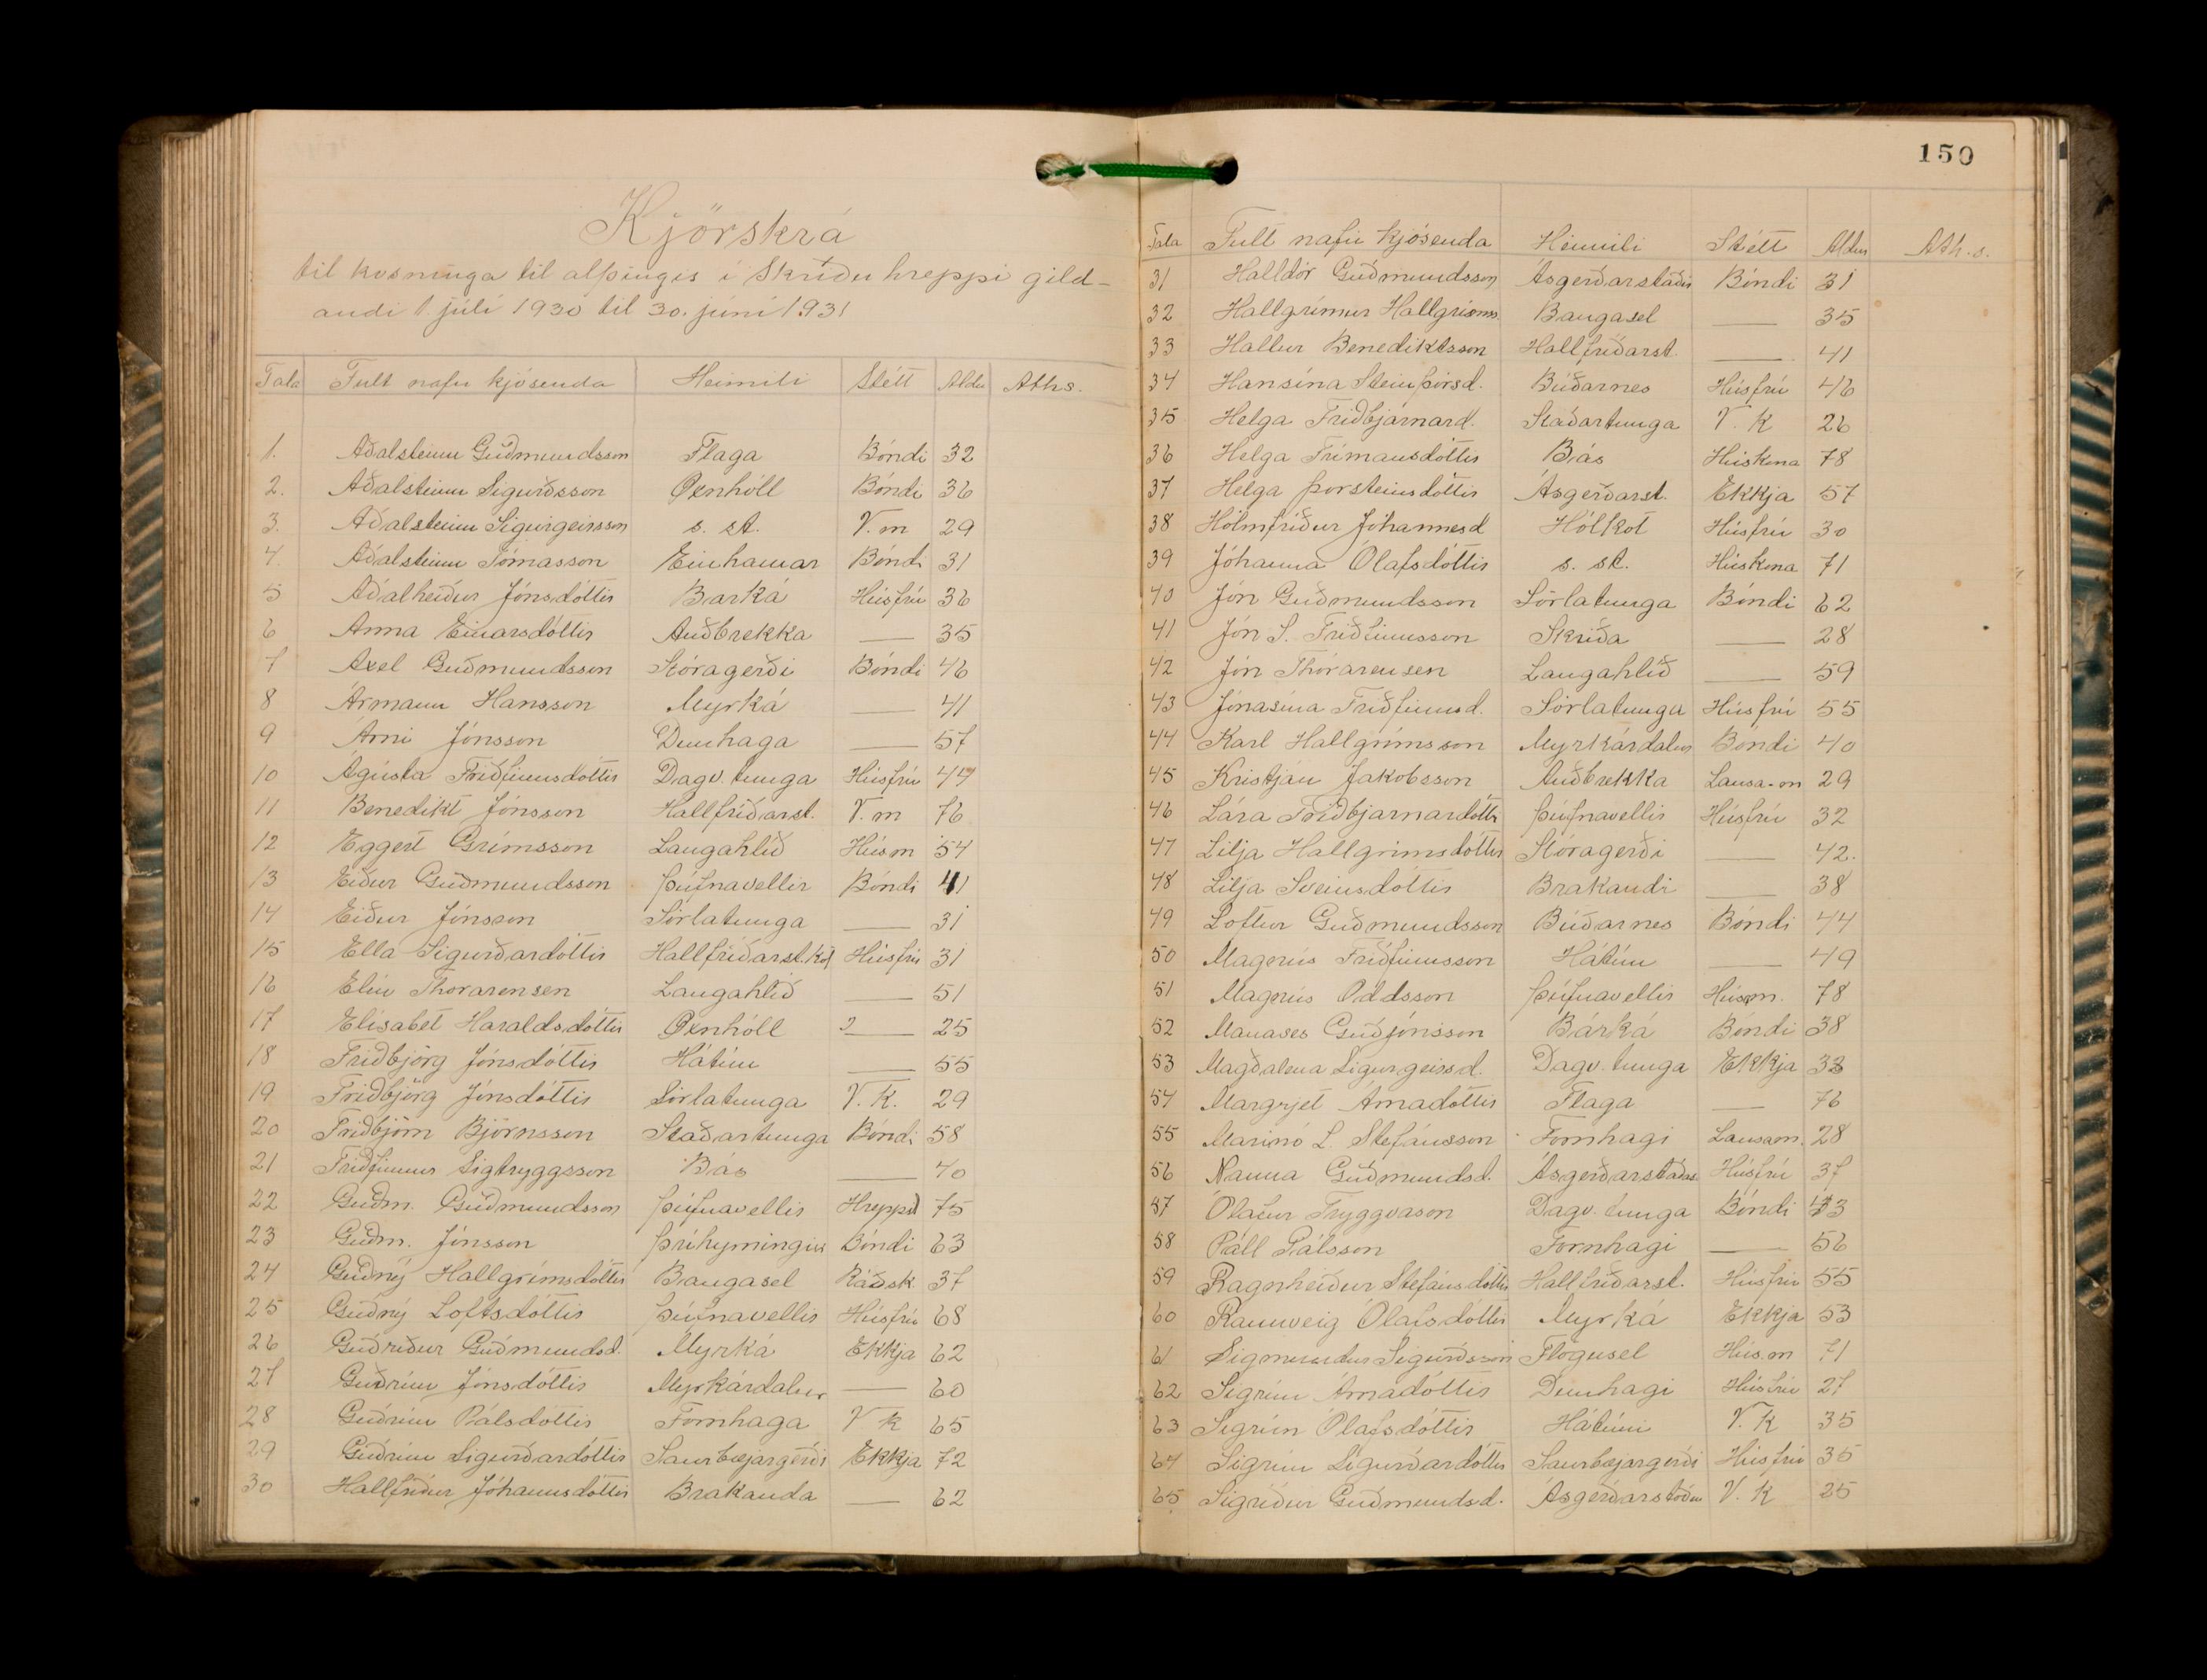 Kjörskrá
til kosninga til alþingis í Skriðuhreppi gild-
andi 1. júlí 1930 til 30. júní 1931
Tala Fult nafn kjósenda Heimili Stétt Aldur Aths.
1. Aðalsteinn Guðmundsson Flaga Bóndi 32
2. Aðalsteinn Sigurðsson Öxnhóll Bóndi 36
3. Aðalsteinn Sigurgeirsson s. st. V. m 29
4. Aðalsteinn Tómasson Einhamar Bóndi 31
5 Aðalheiður Jónsdóttir Barká Húsfrú 36
6 Anna Einarsdóttir Auðbrekka — 35
7 Axel Guðmundsson Stóragerði Bóndi 46
8 Ármann Hansson Myrká — 41
9 Árni Jónsson Dunhaga — 57
10 Ágústa Friðfinnsdóttir Dagv. tunga Húsfrú 44
11 Benedikt Jónsson Hallfríðarst. V. m 76
12 Eggert Grímsson Langahlíð Húsm 54
13 Eiður Guðmundsson Þúfnavellir Bóndi 41
14 Eiður Jónsson Sörlatunga — 31
15 Ella Sigurðardóttir Hallfríðarst.kot Húsfrú 31
16 Elín Thorarensen Langahlíð — 51
17 Elísabet Haraldsdóttir Öxnhóll — 25
18 Friðbjörg Jónsdóttir Hátún — 55
19 Friðbjörg Jónsdóttir Sörlatunga V. K. 29
20 Friðbjörn Björnsson Staðartunga Bóndi 58
21 Friðfinnur Sigtryggsson Bás — 40
22 Guðm. Guðmundsson Þúfnavellir Hreppst 75
23 Guðm. Jónsson Þríhyrningur Bóndi 63
24 Guðný Hallgrímsdóttir Baugasel Ráðsk. 37
25 Guðný Loftsdóttir Þúfnavellir Húsfrú 68
26 Guðríður Guðmundsd. Myrká Ekkja 62
27 Guðrún Jónsdóttir Myrkárdalur — 60
28 Guðrún Pálsdóttir Fornhaga V K 65
29 Guðrún Sigurðardóttir Saurbæjargerði Ekkja 72
30 Hallfríður Jóhannsdóttir Brakanda — 62
150
Tala Fult nafn kjósenda Heimili Stétt Aldur Ath.s.
31 Halldór Guðmundsson Ásgerðarstaðir Bóndi 31
32 Hallgrímur Hallgrímss. Baugasel — 35
33 Hallur Benediktsson Hallfríðarst. — 41
34 Hansína Steinþórsd. Búðarnes Húsfrú 46
35 Helga Friðbjarnard. Staðartunga V. K 26
36 Helga Frímansdóttir Bás Húskona 78
37 Helga Þorsteinsdóttir Ásgerðarst. Ekkja 57
38 Hólmfríður Jóhannesd Hólkot Húsfrú 30
39 Jóhanna Ólafsdóttir s. st. Húskona 71
40 Jón Guðmundsson Sörlatunga Bóndi 62
41 Jón S. Friðfinnsson Skriða — 28
42 Jón Thorarensen Langahlíð — 59
43 Jónasína Friðfinnsd. Sörlatunga Húsfrú 55
44 Karl Hallgrímsson Myrkárdalur Bóndi 40
45 Kristján Jakobsson Auðbrekka Lausa-m 29
46 Lára Friðbjarnardóttir Þúfnavellir Húsfrú 32
47 Lilja Hallgrímsdóttir Stóragerði — 42.
48 Lilja Sveinsdóttir Brakandi — 38
49 Loftur Guðmundsson Búðarnes Bóndi 44
50 Magnús Friðfinnsson Hátún — 49
51 Magnús Oddsson Þúfnavellir Húsm. 78
52 Manases Guðjónsson Bárká Bóndi 38
53 Magðalena Sigurgeirsd. Dagv. tunga Ekkja 33
54 Margrjet Árnadóttir Flaga — 76
55 Marinó L. Stefánsson Fornhagi Lausam. 28
56 Nanna Guðmundsd. Ásgerðarstaðir Húsfrú 37
57 Ólafur Tryggvason Dagv. tunga Bóndi 33
58 Páll Pálsson Fornhagi — 56
59 Ragnheiður Stefánsdóttir Hallfríðarst. Húsfrú 55
60 Rannveig Ólafsdóttir Myrká Ekkja 53
61 Sigmundur Sigurðsson Flögusel Húsm 71
62 Sigrún Árnadóttir Dunhagi Húsfrú 27
63 Sigrún Ólafsdóttir Hátúni V. K 35
64 Sigrún Sigurðardóttir Saurbæjargerði Húsfrú 35
65. Sigríður Guðmundsd. Ásgerðarstöðum V. K 25